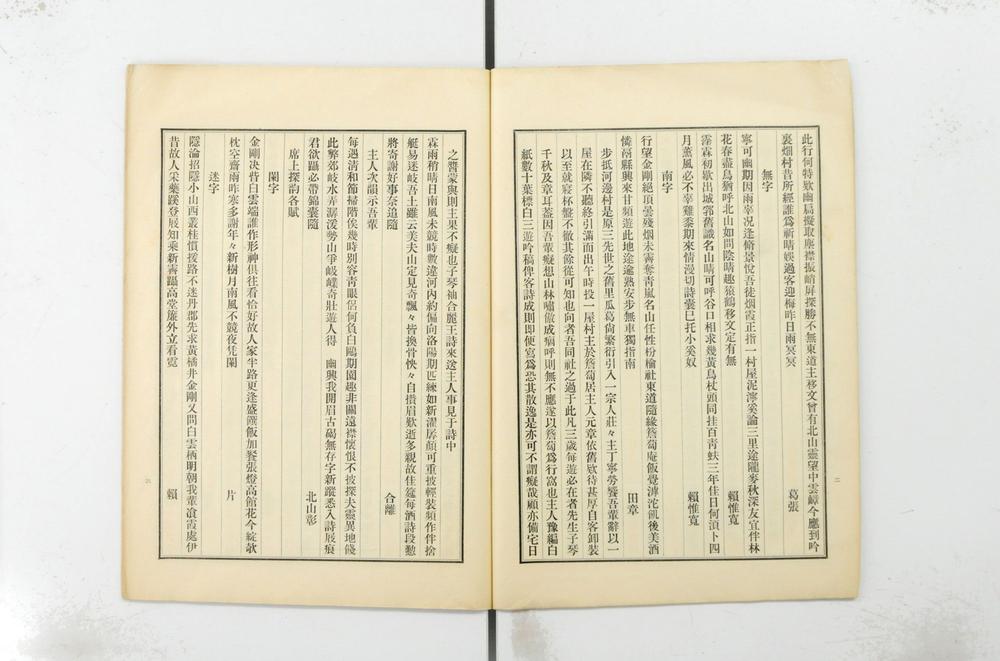 此行何特欵幽扃擬取塵襟振峭屏探勝不無東道主移文曾有北山靈望中雲嶂今應到吟
裏烟村昔所經誰爲祈晴娛過客迎梅昨日雨冥冥
葛張
無字
寧可幽期因雨辜况逢脩景悅吾徒烟霞正指一村屋泥濘奚論三里途隴麥秋深友宜伴林
花春盡鳥猶呼北山如問陰晴趣猿鶴移文定有無
賴惟寬
霪霖初歇出城郭舊識名山晴可呼谷口相求幾黃鳥杖頭同挂百青蚨三年佳日何湏卜四
月薰風必不辜雞黍期來情漫切詩囊巳托小奚奴
賴惟寬
南字
行望金剛絕頂曇殘烟未霽奪靑嵐名山任性枌榆社東道隨緣簷蔔庵飯覺滹沱飢後美酒
憐鬲縣興來甘頻遊此地途逾熟安步無車獨指南
田章
步抵河邊村是原三先世之舊里瓜葛尙繁衍引入一宗人莊々主丁寧勞饗吾輩辭以一
屋在隣不聽終引滿而出午時投一屋村主於簷蔔居主人元章依舊欵待甚厚自客卸裝
以至就寢杯盤不徹其餘從可知也向者吾同社之過于此凡三歲每遊必在者先生子琴
千秋及章耳葢因吾輩癡想山林嘯傲成痼呼則無不應遂以簷蔔爲行窩也主人豫編白
紙數十葉標白三遊吟稿俾客詩成則卽便寫爲恐其散逸是亦可不謂癡哉顧亦備宅日
之醬蒙與則主果不癡也子琴袖合麗王詩來送主人事見于詩中
霖雨稍晴日南風未競時數違河內約偏向洛陽期匹練如新濯孱顏可重披輕裝頻作伴拾
艇易迷岐吾土雖云美夫山定見奇飄々皆換骨怏々自攢眉歎逝多親故佳筵每酒詩段懃
將寄謝好事奈追隨
合離
主人次韻示吾輩
每遇淸和節掃階俟幾時別容靑眼侶何負白鷗期園趣非關遠襟懷恨不披探夫靈異地餞
此弊郊岐水弄潺湲勢山爭岐嶫奇壯遊人得
幽興我開眉古碣無存字新蹤悉入詩屐痕
君欲躡必帶錦囊隨
北山彰
席上探韵各賦
閑字
金剛决眥白雲端誰作形神俱往看恰好故人家半路更逢盛饌飯加餐張燈高館花今綻欹
枕空齋雨昨寒多謝年々新樹月南風不競夜凭闌
片
迷字
隱淪招隱小山西叢桂慣援路不迷丹郡先求黃橘井金剛又問白雲栖明朝我輩飡霞處伊
昔故人采藥蹊登屐知乘新霽躡高堂簾外立看霓
賴